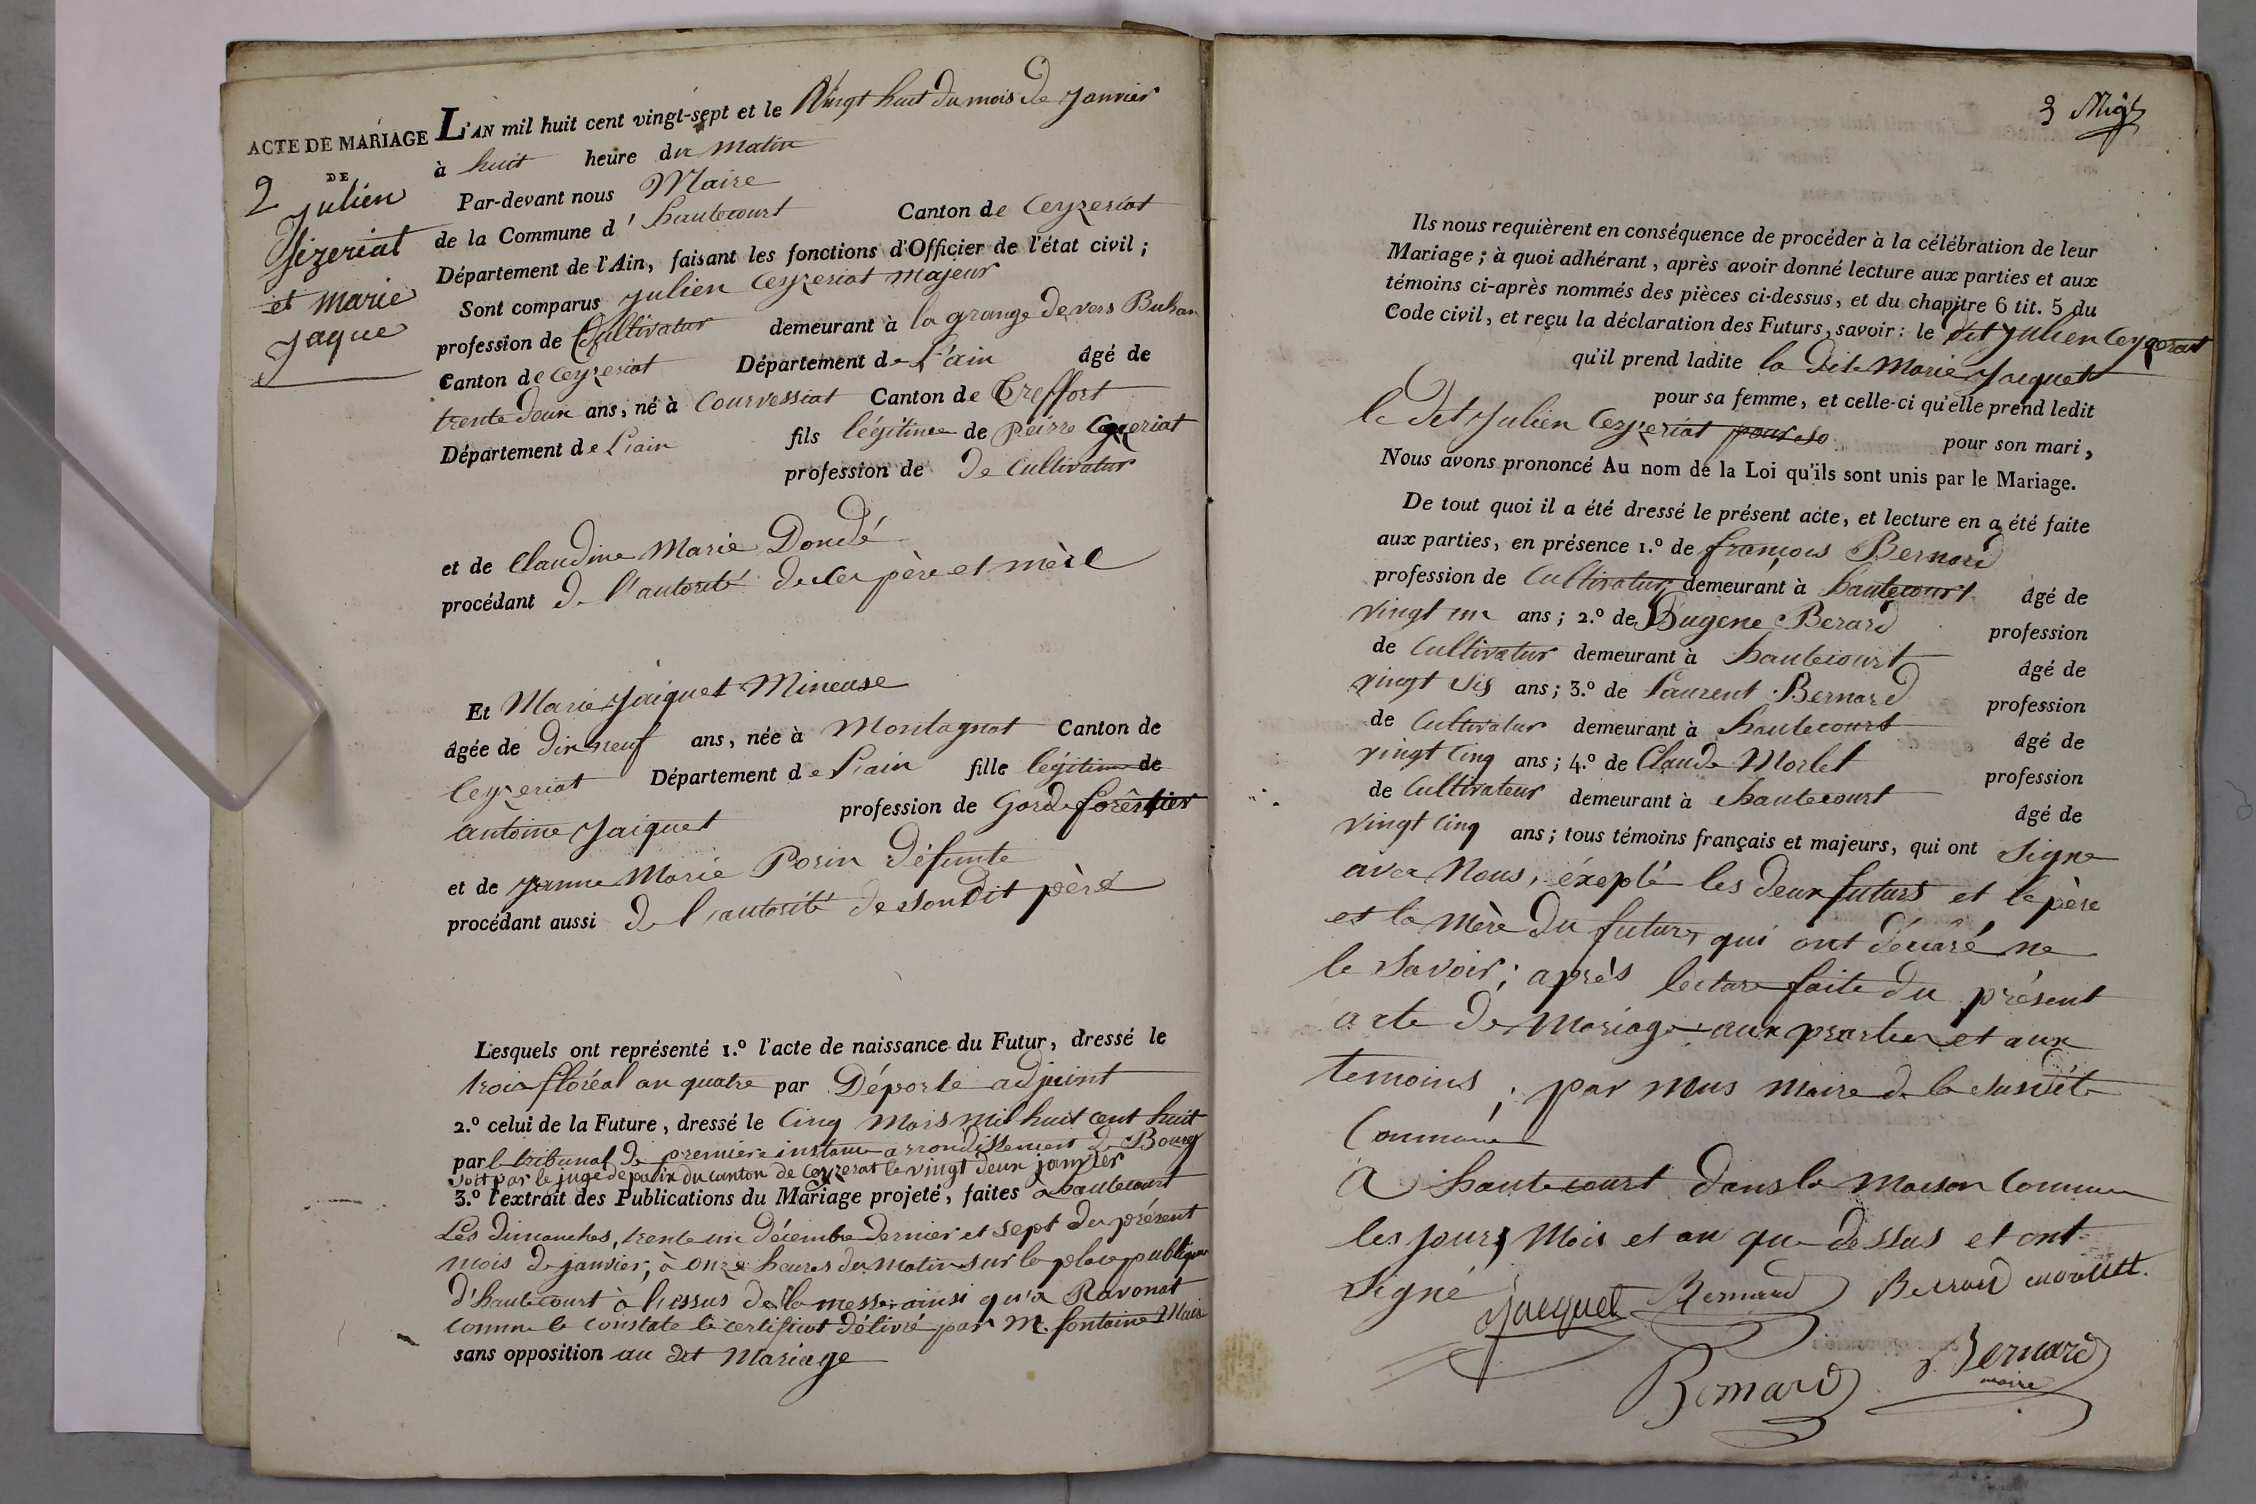 ACTE DE MARIAGE
DE
2 Julien
Sizeriat
et Marie
Jaque
L'AN mil huit cent vingt-sept et le Vingt huit du mois de Janvier
à huit heure du matin
Par-devant nous Maire
de la Commune d' hautecourt Canton de Ceyzeriat
Département de l'Ain, faisant les fonctions d'Officier de l'état civil ;
Sont comparus Julien Ceyzeriat majeur
profession de Cultivatur demeurant à la grange de vers Buhan
Canton de Ceyzeriat Département de L'ain âgé de
trente deux ans, né à Courvessiat Canton de Treffort
Département de L'ain fils légitime de peirre Ceyzeriat
profession de de Cultivatur
et de Claudine Marie Doudé
procédant de l'autorité de ces père et mère
Et Marie Jaiquet Mineuse
âgée de dix neuf ans, née à Montagnat Canton de
Ceyzeriat Département de L'ain fille légitime de
antoine Jaiquet profession de Garde forêstier
et de Jeanne Marie Porin défunte
procédant aussi de l'autorité de son dit père
Lesquels ont représenté 1.º l'acte de naissance du Futur, dressé le
trois floréal an quatre par Déporte adjoint
2.º celui de la Future, dressé le Cinq Mars mil huit cent huit
par le tribunal de première instance arrondissement de Bourg
soit par le juge de paix du canton de Ceyzeriat le vingt deux janvier
3.º l'extrait des Publications du Mariage projeté, faites à hautecourt
Les dimanches, trente un décembre dernier et sept du présent
mois de janvier, à onze heures du matin sur la place publique
d'hautecourt à l'issus de la messe ainsi qu'a Ravonat
comme le constate le certificat délivré par M. fontaine Maire
sans opposition au dit Mariage
3 Migt
Ils nous requièrent en conséquence de procéder à la célébration de leur
Mariage ; à quoi adhérant, après avoir donné lecture aux parties et aux
témoins ci-après nommés des pièces ci-dessus, et du chapitre 6 tit. 5 du
Code civil, et reçu la déclaration des Futurs, savoir : le dit Julien Ceyzeriat
qu'il prend ladite la dite Marie Jaiquet
pour sa femme, et celle-ci qu'elle prend ledit
le dit Julien Ceyzeriat pour so pour son mari,
Nous avons prononcé Au nom de la Loi qu'ils sont unis par le Mariage.
De tout quoi il a été dressé le présent acte, et lecture en a été faite
aux parties, en présence 1.º de françois Bernard
profession de Cultivatur demeurant à hautecourt âgé de
vingt un ans ; 2.º de Eugene Berard profession
de Cultivatur demeurant à hautecourt âgé de
vingt sis ans ; 3.º de Laurent Bernard profession
de Cultivatur demeurant à hautecourt âgé de
vingt cinq ans ; 4.º de Claude Morlet profession
de Cultivateur demeurant à hautecourt âgé de
vingt cinq ans ; tous témoins français et majeurs, qui ont signe
avec Nous, éxepté les deux futurs et le père
et la mère du futur, qui ont déclaré ne
le savoir ; après lecture faite du présent
acte de Mariage aux parties et aux
temoins ; par nous maire de la susdite
Commune
a hautecourt dans la maison Commune
les jour, Mois et an que dessus et ont
signé
Jacquet Bernard Berard morlett.
Bernard Bernard
maire